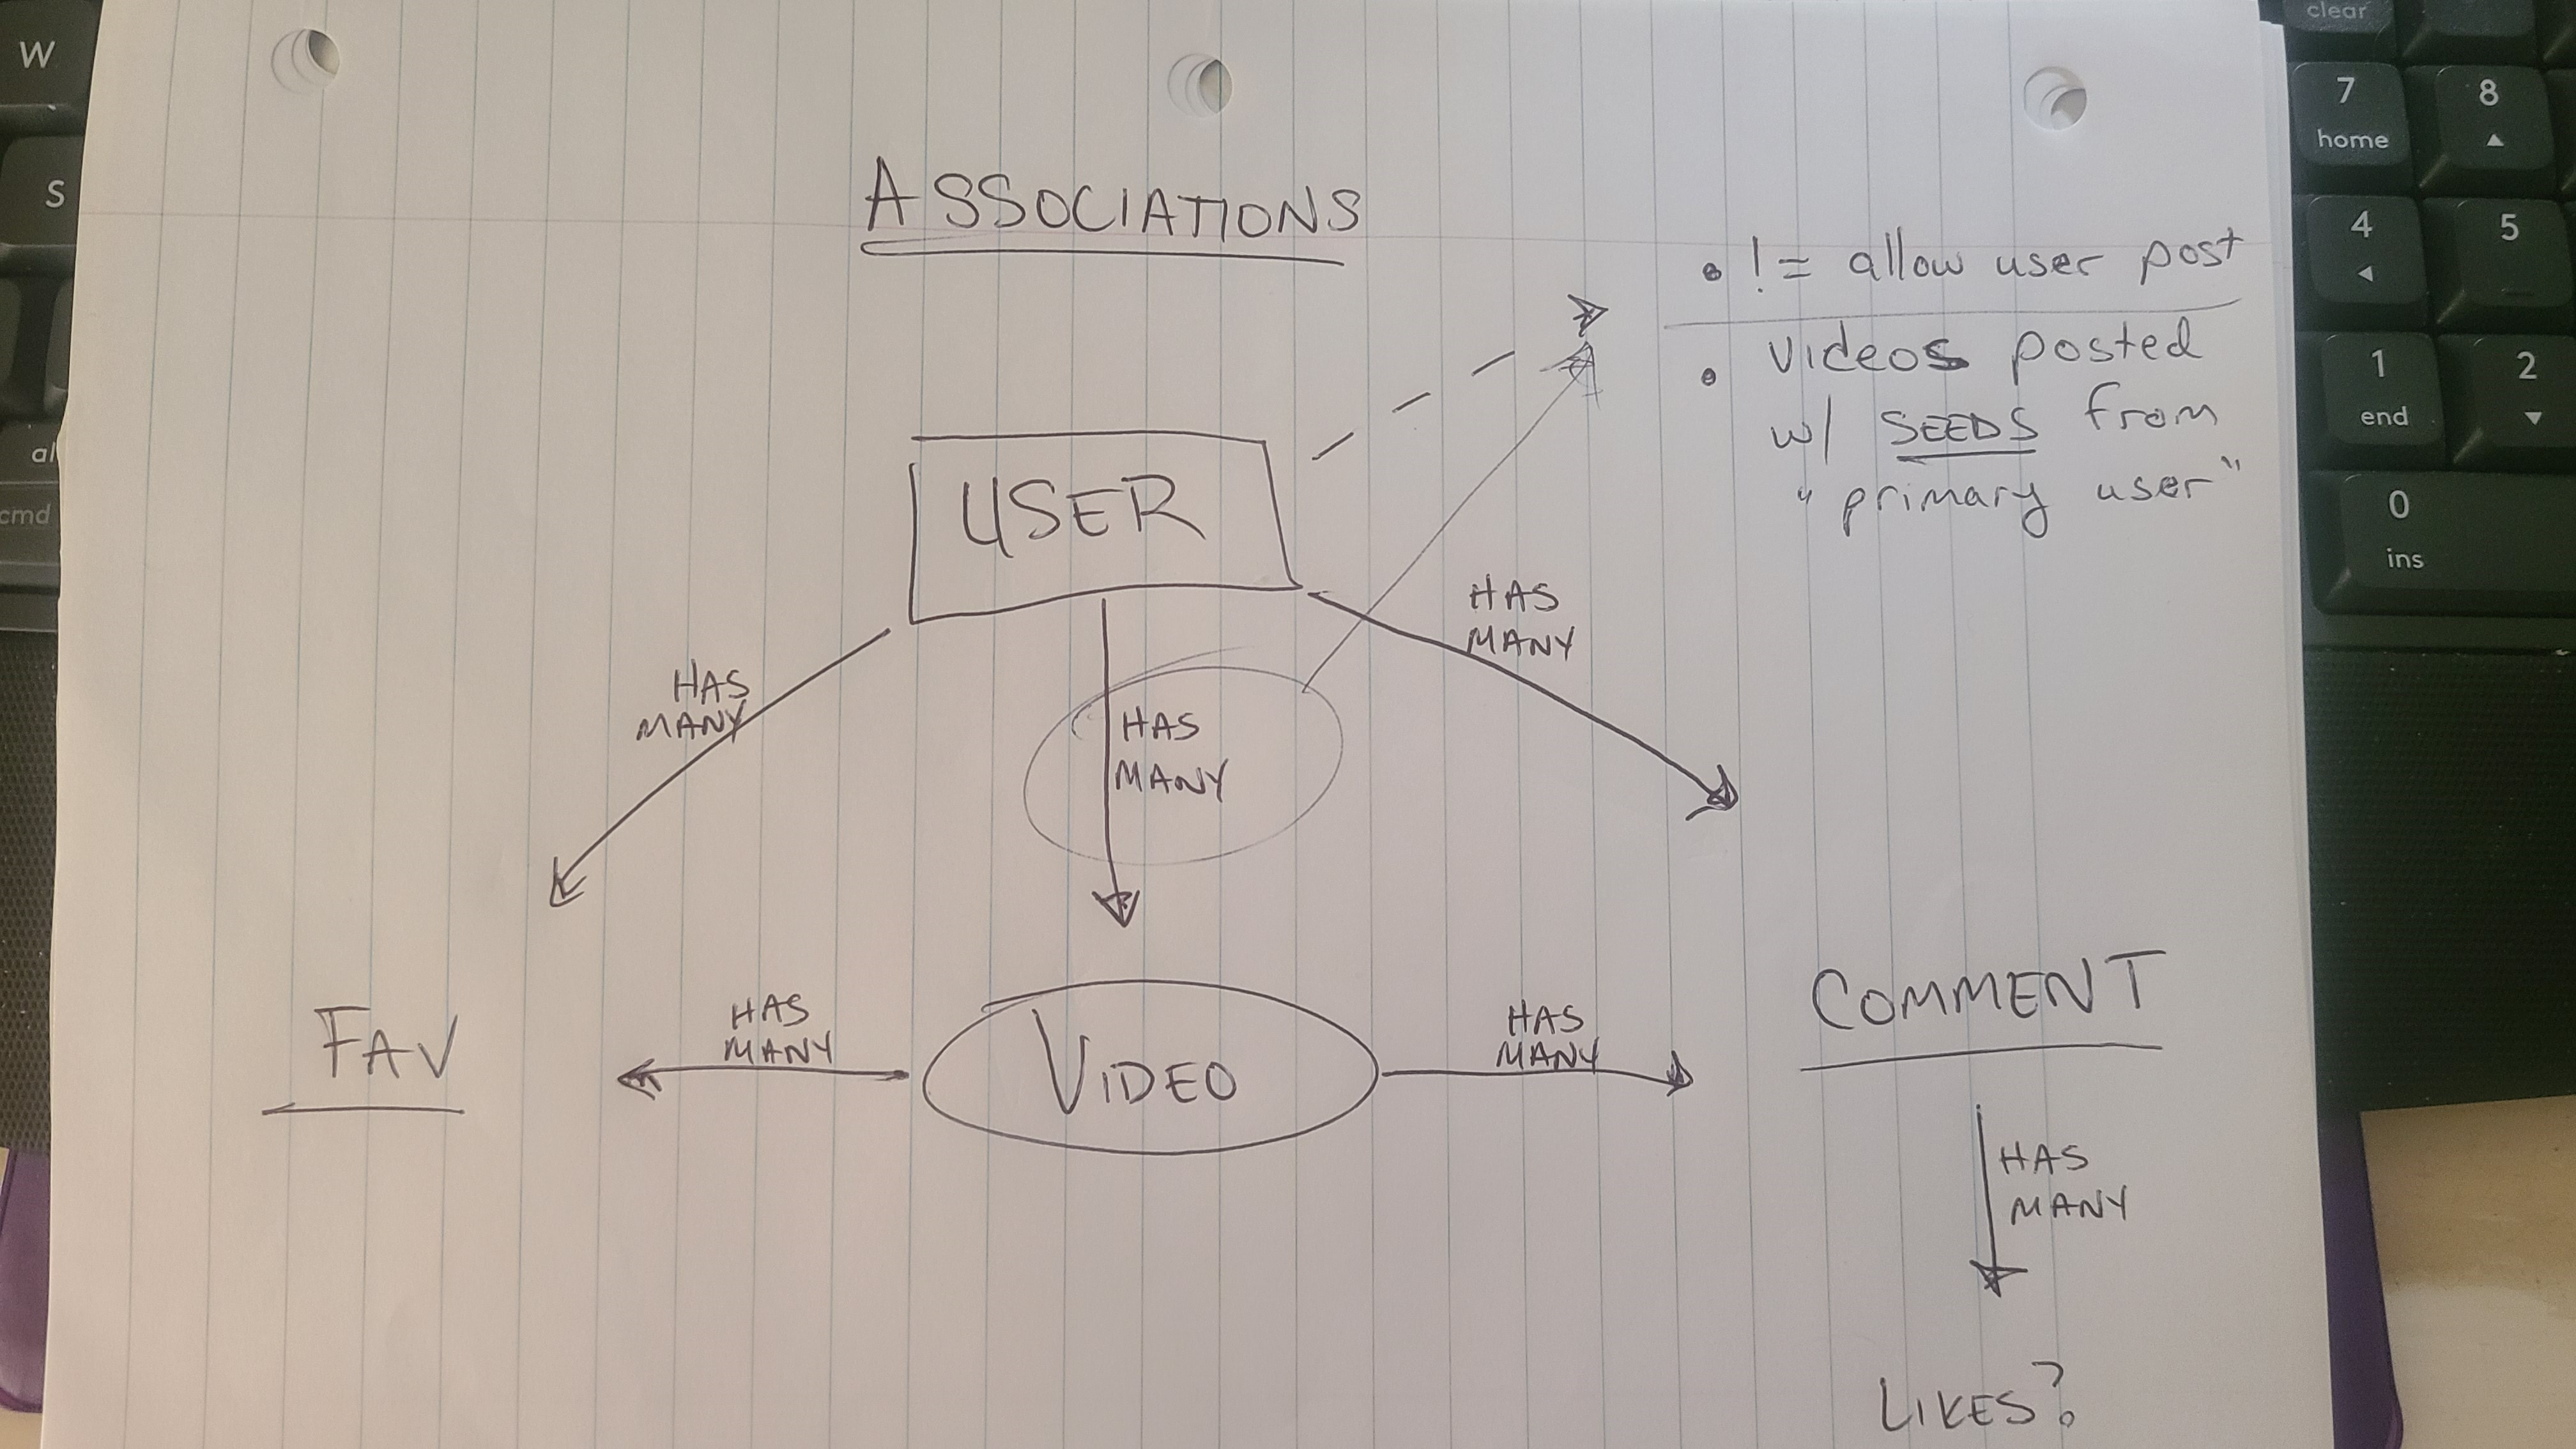 ASSOCIATIONS
• != allow user post
• Videos posted
w/ SEEDS from
"primary user"
USER
HAS
MANY
HAS
MANY
HAS
MANY
FAV
HAS
MANY
VIDEO
HAS
MANY
COMMENT
HAS
MANY
LIKES?
W
S
al
cmd
clear
7
home
8
4
5
1
end
2
0
ins